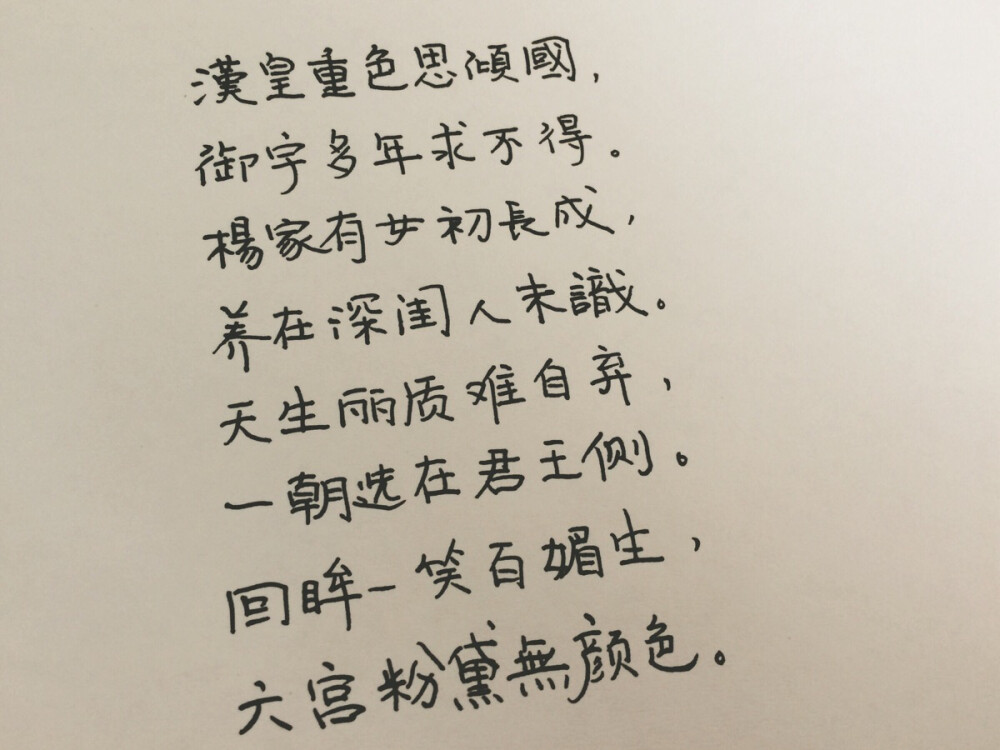 漢皇重色思傾國，
御宇多年求不得。
楊家有女初長成，
养在深闺人未識。
天生丽质难自弃，
一朝选在君王侧。
回眸一笑百媚生，
六宫粉黛無颜色。